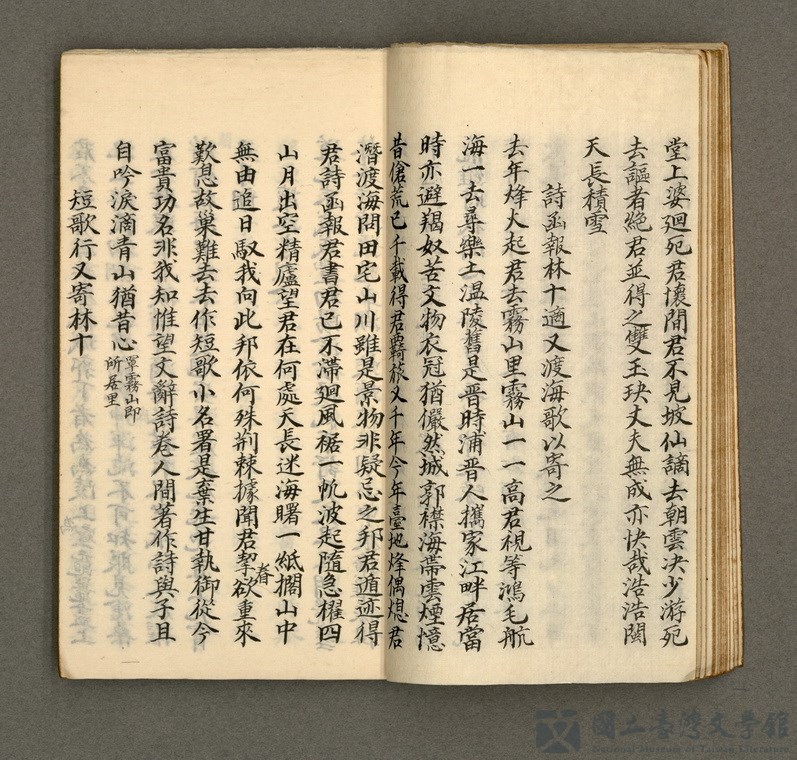 堂上婆廻死君懷間君不見坡仙謫去朝雲决少游死
去謳者絶君並得之雙玉玦丈夫無成亦快哉浩浩閩
天長積雪
詩函報林十適又渡海歌以寄之
去年烽火起君去霧山里霧山一一高君視等鴻毛航
海一去尋樂土温陵舊是晋時浦晋人攜家江畔居當
時亦避羯奴苦文物衣冠猶儼然城郭襟海帶雲煙憶
昔傖荒已千載得君羇旅又千年今年臺地烽偶熄君
潛渡海問田宅山川雖是景物非疑忌之邦君遁迹得
君詩函報君書君已不滯廻風裾一帆波起隨急櫂四
山月出空精廬望君在何處天長迷海曙一紙擱山中
無由追日馭我向此邦依何殊荆棘據聞君挈眷欲重來
歎息故巢難去去作短歌小名署是棄生甘執御從今
富貴功名非我知惟望文辭詩卷人間著作詩與子且
自吟淚滴青山猶昔心罩霧山即
所居里
短歌行又寄林十
國立臺灣文學館
National Museum of Taiwan Literature